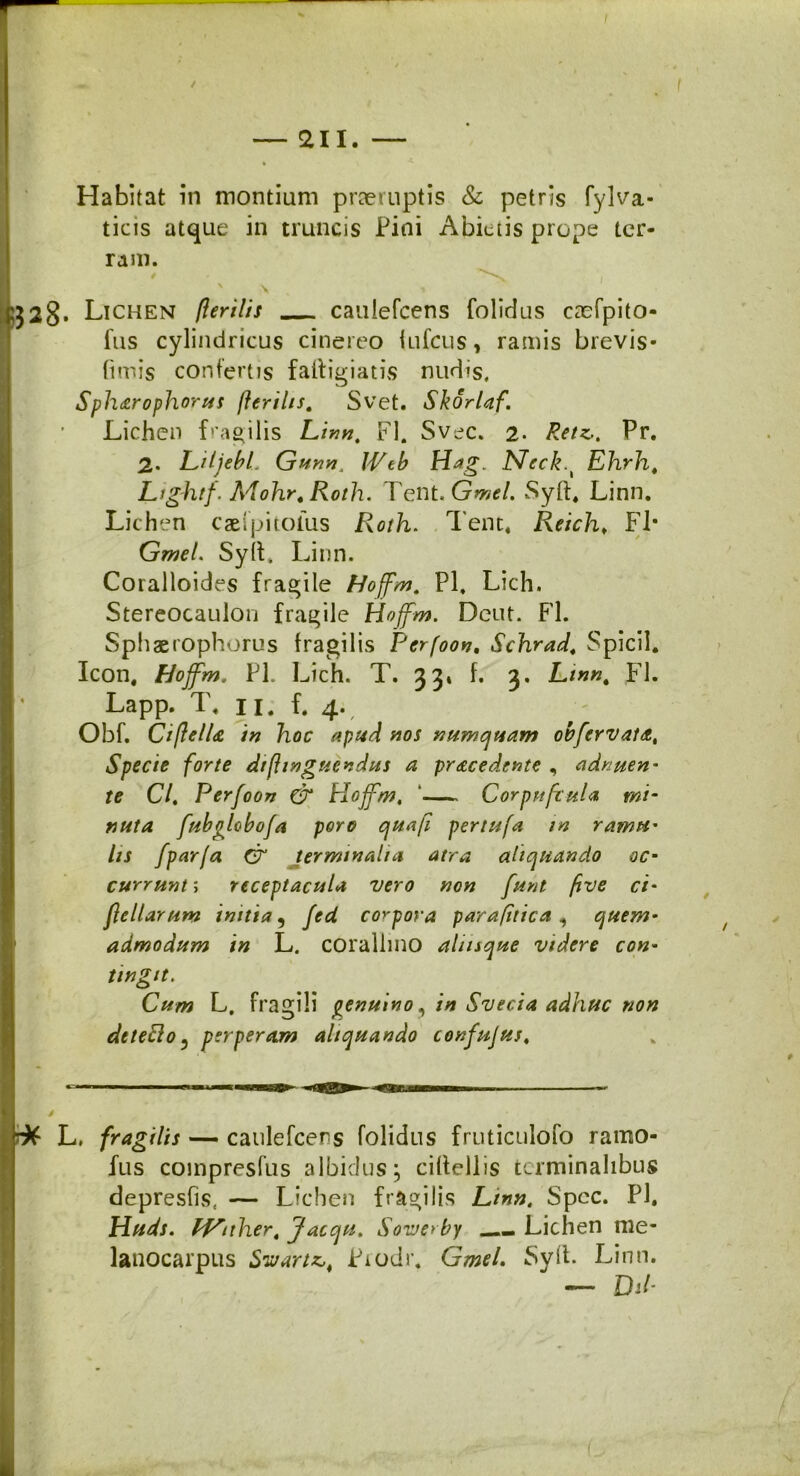 — 211. —
Habitat in montium præruptis & petris ſylva-
ticis atque in truncis Pini Abietis prope ter-
ram.
328. LICHEN ſterilis — cauleſcens ſolidus cæſpito-
ſus cylindricus cinereo fuſcus, ramis brevis-
ſimis confertis faſtigiatis nudis.
Sphærophorus ſterilis. Svet. Skörlaf.
Lichen fragilis Linn. Fl. Svec. 2. Retz. Pr.
2. Liljebl. Gunn. Web Hag. Neck. Ehrh.
Lightf. Mohr. Roth. Tent. Gmel. Syſt. Linn.
Lichen cæſpitoſus Roth. Tent. Reich. Fl.
Gmel. Syſt. Linn.
Coralloides fragile Hoffm. Pl. Lich.
Stereocaulon fragile Hoffm. Deut. Fl.
Sphærophorus fragilis Perſoon. Schrad. Spicil.
Icon. Hoffm. Pl. Lich. T. 33. f. 3. Linn. Fl.
Lapp. T. 11. f. 4.
Obſ. Ciſtellæ in hoc apud nos numquam obſervatæ.
Specie forte diſtinguendus a præcedente, adnuen-
te Cl. Perſoon & Hoffm. — Corpuſcula mi-
nuta ſubgloboſa poro quaſi pertuſa in ramu-
lis ſparſa & terminalia atra aliquando oc-
currunt; receptacula vero non ſunt ſive ci-
ſtellarum initia, ſed corpora paraſitica, quem-
admodum in L. corallino aliisque videre con-
tingit.
Cum L. fragili genuino, in Svecia adhuc non
detecto, perperam aliquando confuſus.
* L. fragilis — cauleſcens ſolidus fruticuloſo ramo-
ſus compresſus albidus; ciſtellis terminalibus
depresſis. — Lichen fragilis Linn. Spec. Pl.
Huds. Wither. Jacqu. Sowerby — Lichen me-
lanocarpus Swartz. Prodr. Gmel. Syſt. Linn.
— Dil-